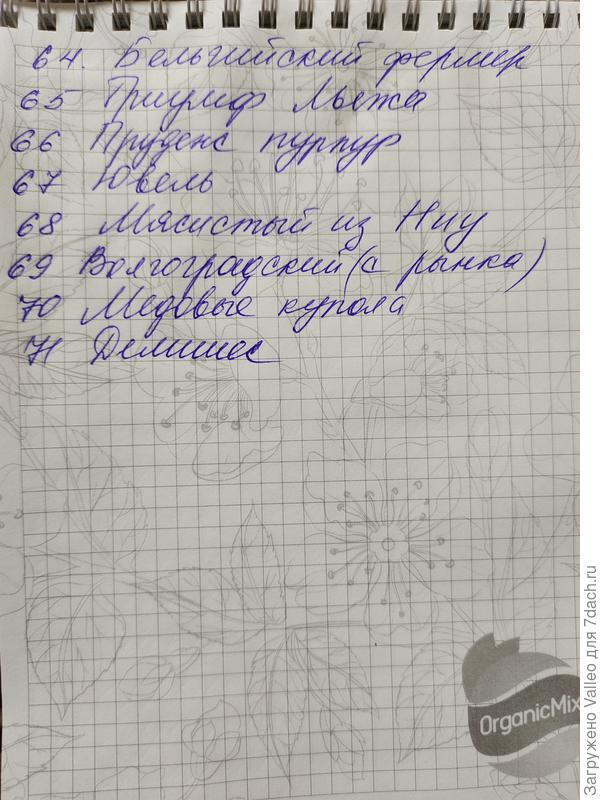 64. Бельгийский фермер
65 Триумф Льежа
66 Пруденс пурпур
67 Ювель
68 Мясистый из Ниу
69 Волгоградский (с рынка)
70 Медовые купола
71 Делишес
OrganicMix
Загружено Valleo для 7dach.ru